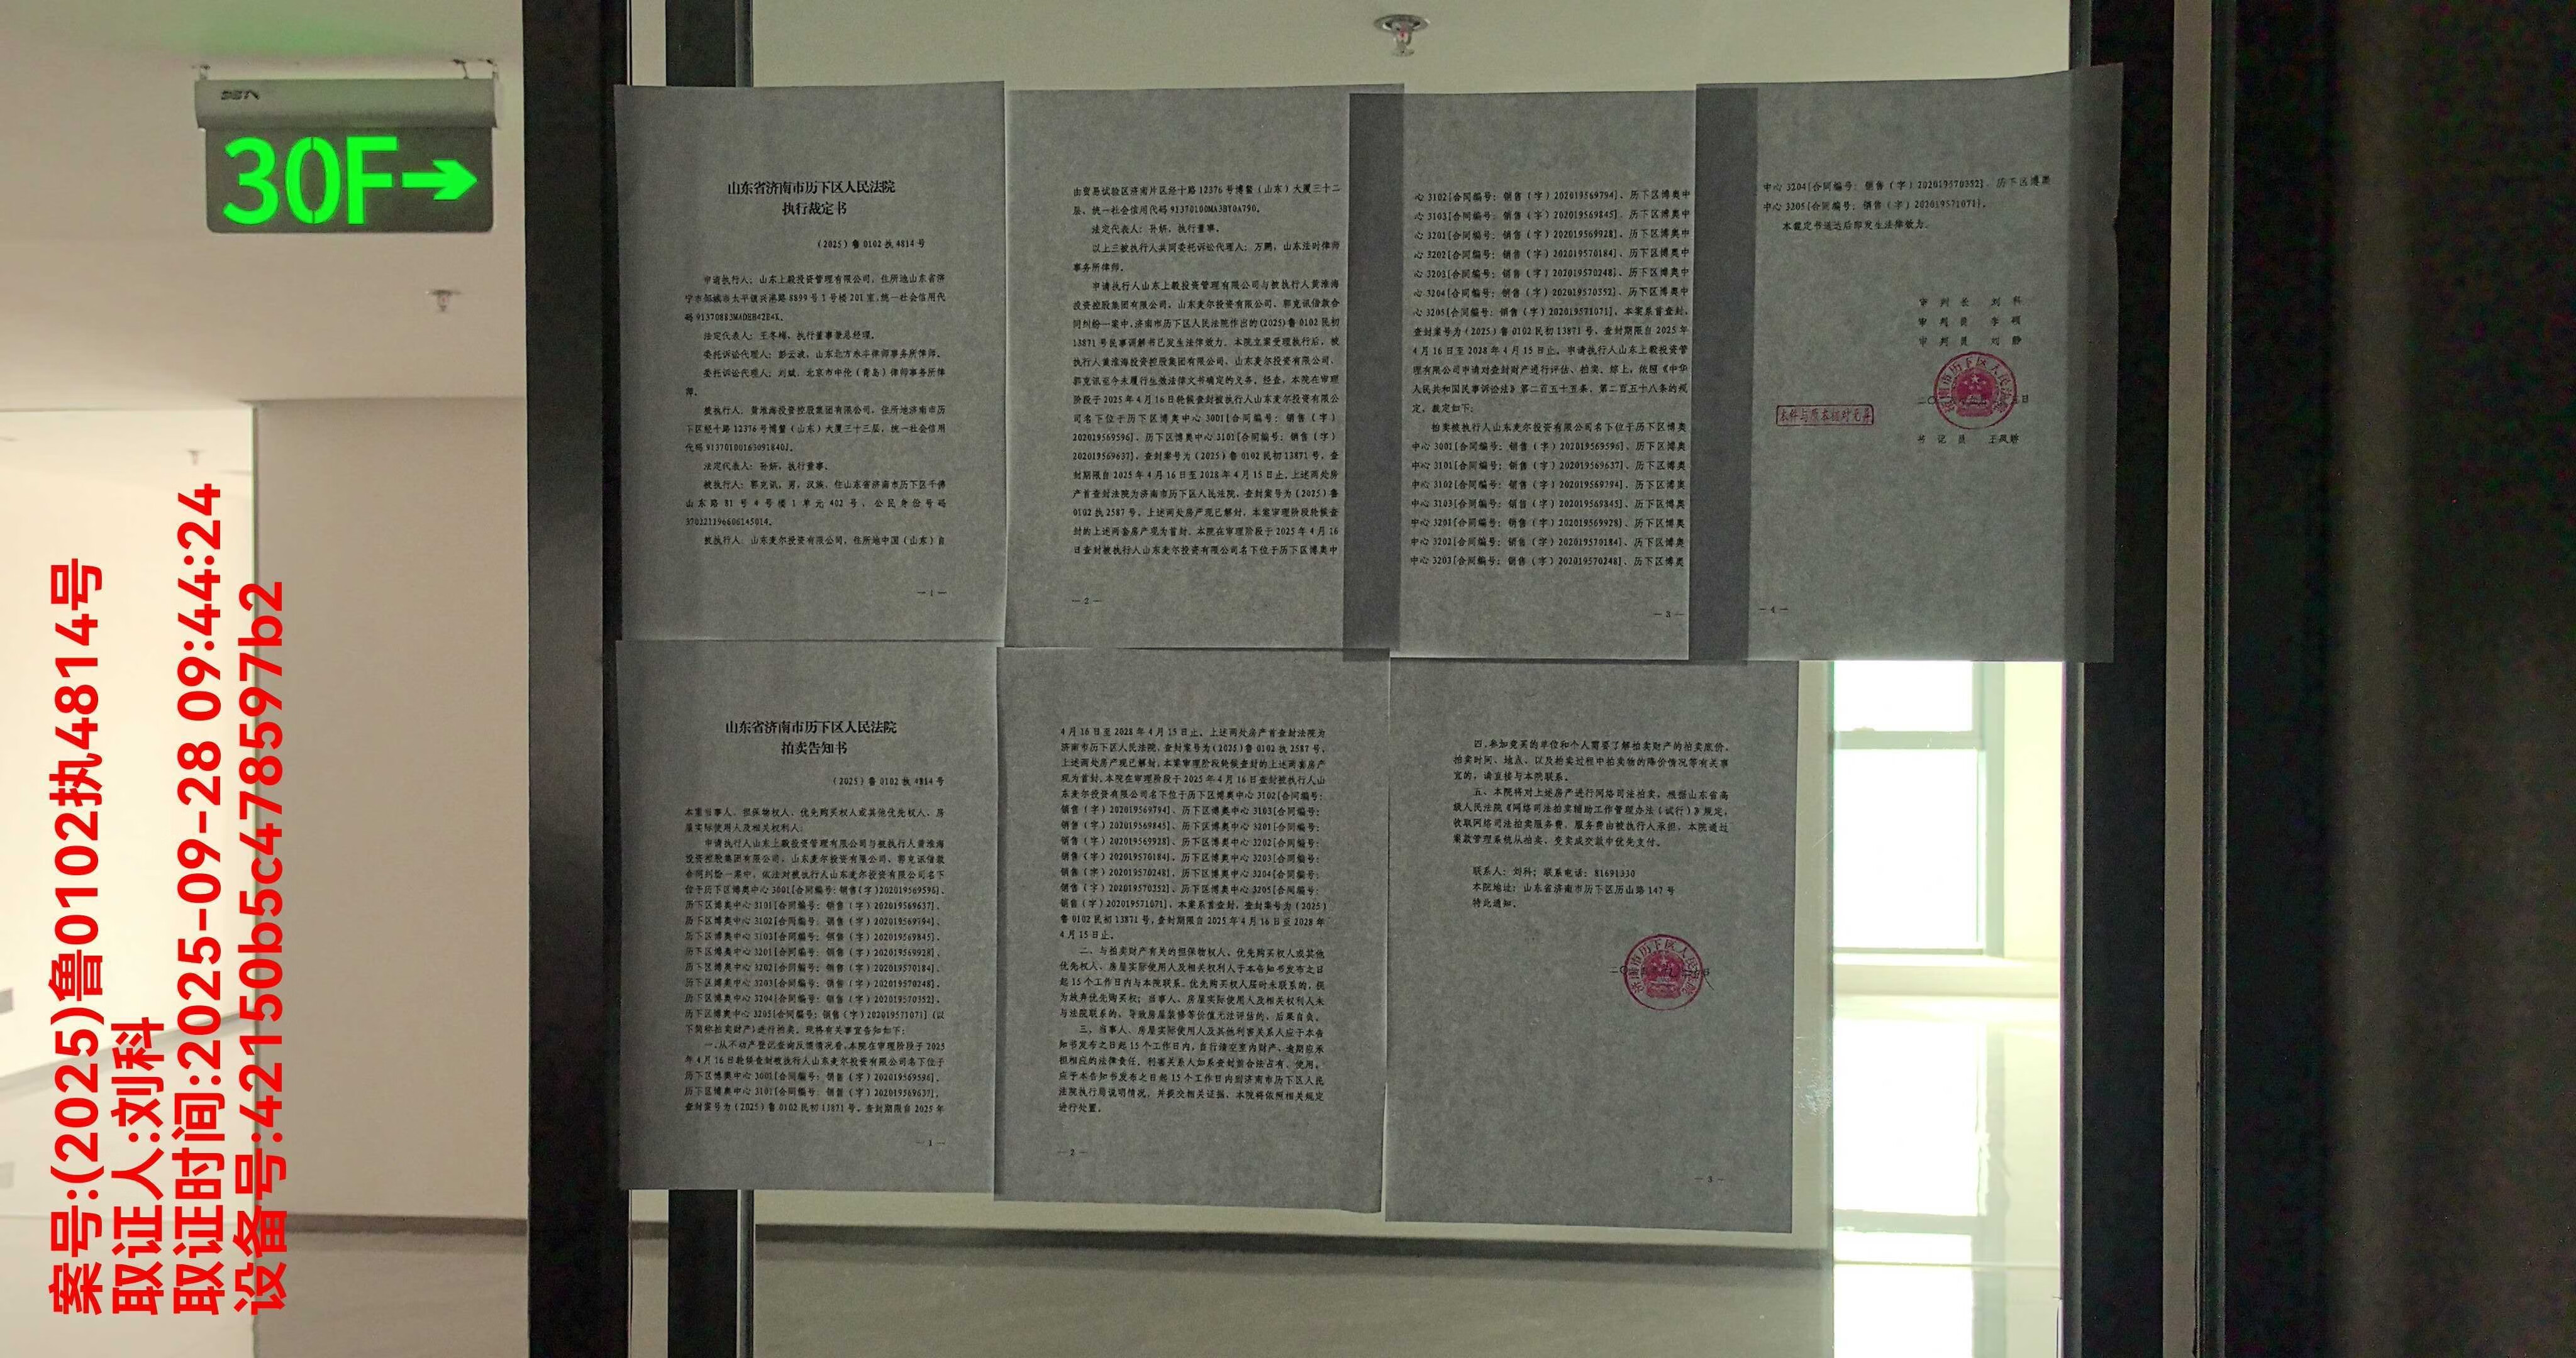 30F→
山东省济南市历下区人民法院
执行裁定书
（2025）鲁 0102 执 4814 号
申请执行人：山东上毅投资管理有限公司，住所地山东省济
宁市邹城市太平镇兴港路 8899 号 1 号楼 201 室，统一社会信用代
法定代表人：王冬梅，执行董事兼总经理。
委托诉讼代理人：彭云波，山东北方永斗律师事务所律师。
委托诉讼代理人：刘斌，北京市中伦（青岛）律师事务所律
师。
被执行人：黄淮海投资控股集团有限公司，住所地济南市历
下区经十路 12376 号博鳌（山东）大厦三十三层，统一社会信用
法定代表人：孙妍，执行董事。
被执行人：郭克讯，男，汉族，住山东省济南市历下区千佛
山东路 81 号 4 号楼 1 单元 402 号，公民身份号码
370221196606145014。
被执行人：山东麦尔投资有限公司，住所地中国（山东）自
— 1 —
由贸易试验区济南片区经十路 12376 号博鳌（山东）大厦三十二
层，统一社会信用代码 91370100MA3BY0A790。
法定代表人：孙妍，执行董事。
以上三被执行人共同委托诉讼代理人：万鹏，山东法时律师
事务所律师。
申请执行人山东上毅投资管理有限公司与被执行人黄淮海
投资控股集团有限公司、山东麦尔投资有限公司、郭克讯借款合
同纠纷一案中，济南市历下区人民法院作出的(2025)鲁 0102 民初
13871 号民事调解书已发生法律效力。本院立案受理执行后，被
执行人黄淮海投资控股集团有限公司、山东麦尔投资有限公司、
郭克讯至今未履行生效法律文书确定的义务。经查，本院在审理
阶段于 2025 年 4 月 16 日轮候查封被执行人山东麦尔投资有限公
司名下位于历下区博奥中心 3001[合同编号：销售（字）
202019569596]、历下区博奥中心 3101[合同编号：销售（字）
202019569637]，查封案号为（2025）鲁 0102 民初 13871 号，查
封期限自 2025 年 4 月 16 日至 2028 年 4 月 15 日止。上述两处房
产首查封法院为济南市历下区人民法院，查封案号为（2025）鲁
0102 执 2587 号。上述两处房产现已解封，本案审理阶段轮候查
封的上述两套房产现为首封。本院在审理阶段于 2025 年 4 月 16
日查封被执行人山东麦尔投资有限公司名下位于历下区博奥中
— 2 —
心 3102[合同编号：销售（字）202019569794]、历下区博奥中
心 3103[合同编号：销售（字）202019569845]、历下区博奥中
心 3201[合同编号：销售（字）202019569928]、历下区博奥中
心 3202[合同编号：销售（字）202019570184]、历下区博奥中
心 3203[合同编号：销售（字）202019570248]、历下区博奥中
心 3204[合同编号：销售（字）202019570352]、历下区博奥中
心 3205[合同编号：销售（字）202019571071]，本案系首查封，
查封案号为（2025）鲁 0102 民初 13871 号，查封期限自 2025 年
4 月 16 日至 2028 年 4 月 15 日止。申请执行人山东上毅投资管
理有限公司申请对查封财产进行评估、拍卖。综上，依照《中华
人民共和国民事诉讼法》第二百五十五条、第二百五十八条的规
定，裁定如下：
拍卖被执行人山东麦尔投资有限公司名下位于历下区博奥
中心 3001[合同编号：销售（字）202019569596]、历下区博奥
中心 3101[合同编号：销售（字）202019569637]、历下区博奥
中心 3102[合同编号：销售（字）202019569794]、历下区博奥
中心 3103[合同编号：销售（字）202019569845]、历下区博奥
中心 3201[合同编号：销售（字）202019569928]、历下区博奥
中心 3202[合同编号：销售（字）202019570184]、历下区博奥
中心 3203[合同编号：销售（字）202019570248]、历下区博奥
— 3 —
中心 3204[合同编号：销售（字）202019570352]、历下区博奥
中心 3205[合同编号：销售（字）202019571071]。
本裁定书送达后即发生法律效力。
审 判 长 刘 科
审 判 员 李 硕
审 判 员 刘 静
本件与原本核对无异
书 记 员
— 4 —
山东省济南市历下区人民法院
拍卖告知书
（2025）鲁 0102 执 4814 号
本案当事人、担保物权人、优先购买权人或其他优先权人、房
屋实际使用人及相关权利人：
申请执行人山东上毅投资管理有限公司与被执行人黄淮海
投资控股集团有限公司、山东麦尔投资有限公司、郭克讯借款
合同纠纷一案中，依法对被执行人山东麦尔投资有限公司名下
位于历下区博奥中心 3001[合同编号：销售（字）202019569596]、
历下区博奥中心 3101[合同编号：销售（字）202019569637]、
历下区博奥中心 3102[合同编号：销售（字）202019569794]、
历下区博奥中心 3103[合同编号：销售（字）202019569845]、
历下区博奥中心 3201[合同编号：销售（字）202019569928]、
历下区博奥中心 3202[合同编号：销售（字）202019570184]、
历下区博奥中心 3203[合同编号：销售（字）202019570248]、
历下区博奥中心 3204[合同编号：销售（字）202019570352]、
历下区博奥中心 3205[合同编号：销售（字）202019571071]（以
下简称拍卖财产）进行拍卖。现将有关事宜告知如下：
一、从不动产登记查询反馈情况看，本院在审理阶段于 2025
年 4 月 16 日轮候查封被执行人山东麦尔投资有限公司名下位于
历下区博奥中心 3001[合同编号：销售（字）202019569596]、
历下区博奥中心 3101[合同编号：销售（字）202019569637]，
查封案号为（2025）鲁 0102 民初 13871 号，查封期限自 2025 年
— 1 —
4 月 16 日至 2028 年 4 月 15 日止。上述两处房产首查封法院为
济南市历下区人民法院，查封案号为（2025）鲁 0102 执 2587 号。
上述两处房产现已解封，本案审理阶段轮候查封的上述两套房产
现为首封。本院在审理阶段于 2025 年 4 月 16 日查封被执行人山
东麦尔投资有限公司名下位于历下区博奥中心 3102[合同编号：
销售（字）202019569794]、历下区博奥中心 3103[合同编号：
销售（字）202019569845]、历下区博奥中心 3201[合同编号：
销售（字）202019569928]、历下区博奥中心 3202[合同编号：
销售（字）202019570184]、历下区博奥中心 3203[合同编号：
销售（字）202019570248]、历下区博奥中心 3204[合同编号：
销售（字）202019570352]、历下区博奥中心 3205[合同编号：
销售（字）202019571071]，本案系首查封，查封案号为（2025）
鲁 0102 民初 13871 号，查封期限自 2025 年 4 月 16 日至 2028 年
4 月 15 日止。
二、与拍卖财产有关的担保物权人、优先购买权人或其他
优先权人、房屋实际使用人及相关权利人于本告知书发布之日
起 15 个工作日内与本院联系。优先购买权人届时未联系的，视
为放弃优先购买权；当事人、房屋实际使用人及相关权利人未
与法院联系的，导致房屋装修等价值无法评估的，后果自负。
三、当事人、房屋实际使用人及其他利害关系人应于本告
知书发布之日起 15 个工作日内，自行清空室内财产，逾期应承
担相应的法律责任。利害关系人如系查封前合法占有、使用，
应于本告知书发布之日起 15 个工作日内到济南市历下区人民
法院执行局说明情况，并提交相关证据，本院将依照相关规定
进行处置。
— 2 —
四、参加竞买的单位和个人需要了解拍卖财产的拍卖底价、
拍卖时间、地点，以及拍卖过程中拍卖物的降价情况等有关事
宜的，请直接与本院联系。
五、本院将对上述房产进行网络司法拍卖，根据山东省高
级人民法院《网络司法拍卖辅助工作管理办法（试行）》规定，
收取网络司法拍卖服务费，服务费由被执行人承担，本院通过
案款管理系统从拍卖、变卖成交款中优先支付。
联系人：刘科；联系电话：81691330
本院地址：山东省济南市历下区历山路 147 号
特此通知。
— 3 —
案号:(2025)鲁0102执4814号
取证人:刘科
取证时间:2025-09-28 09:44:24
设备号:42150b5c478597b2